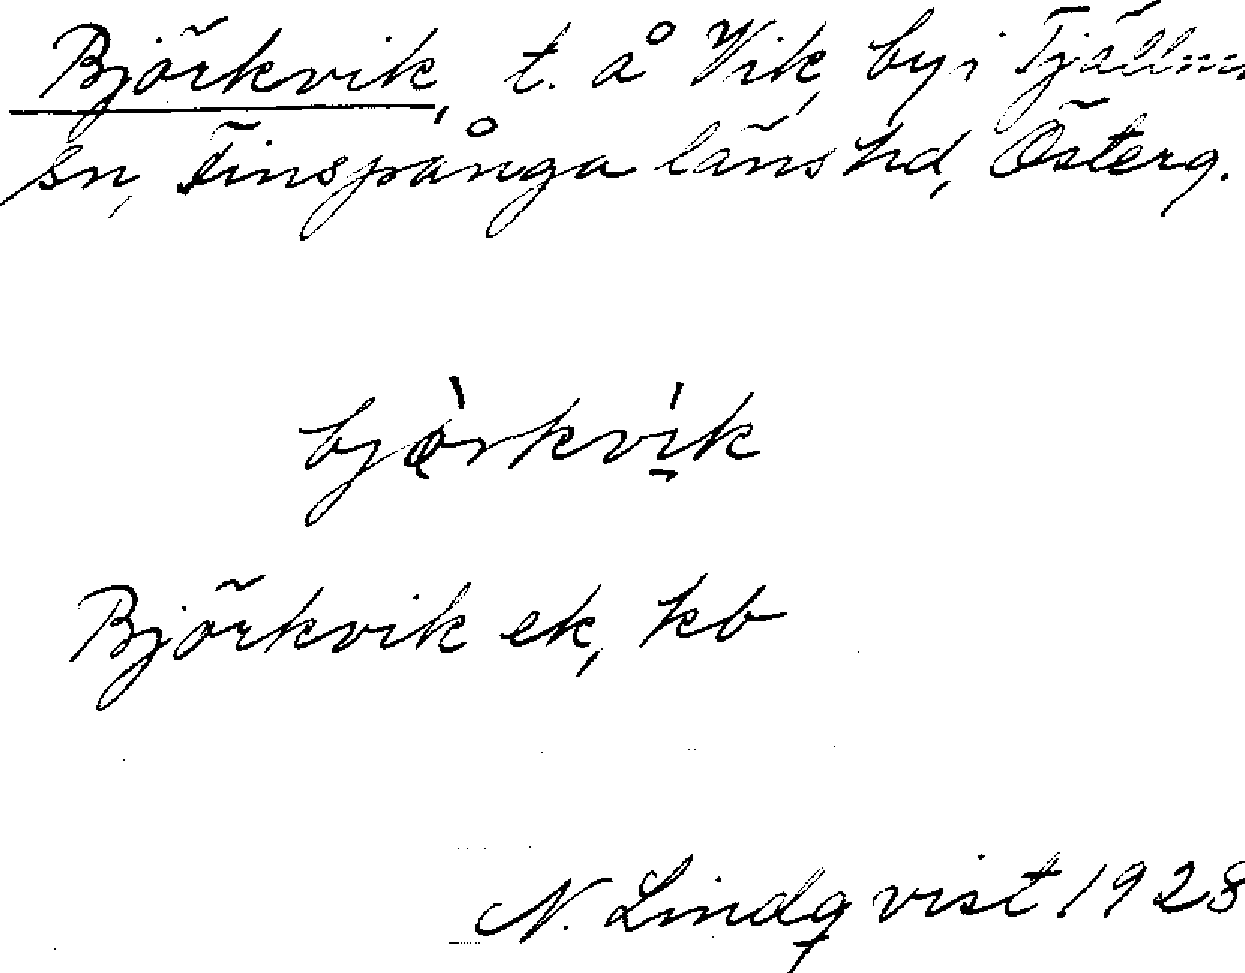 Björkvik, t. å Vik, by i Tjällm
sn, Finspånga läns hd, Österg.
bjǫ̀rkvı̱́k
Björkvik ek, kb
N. Lindqvist 1928